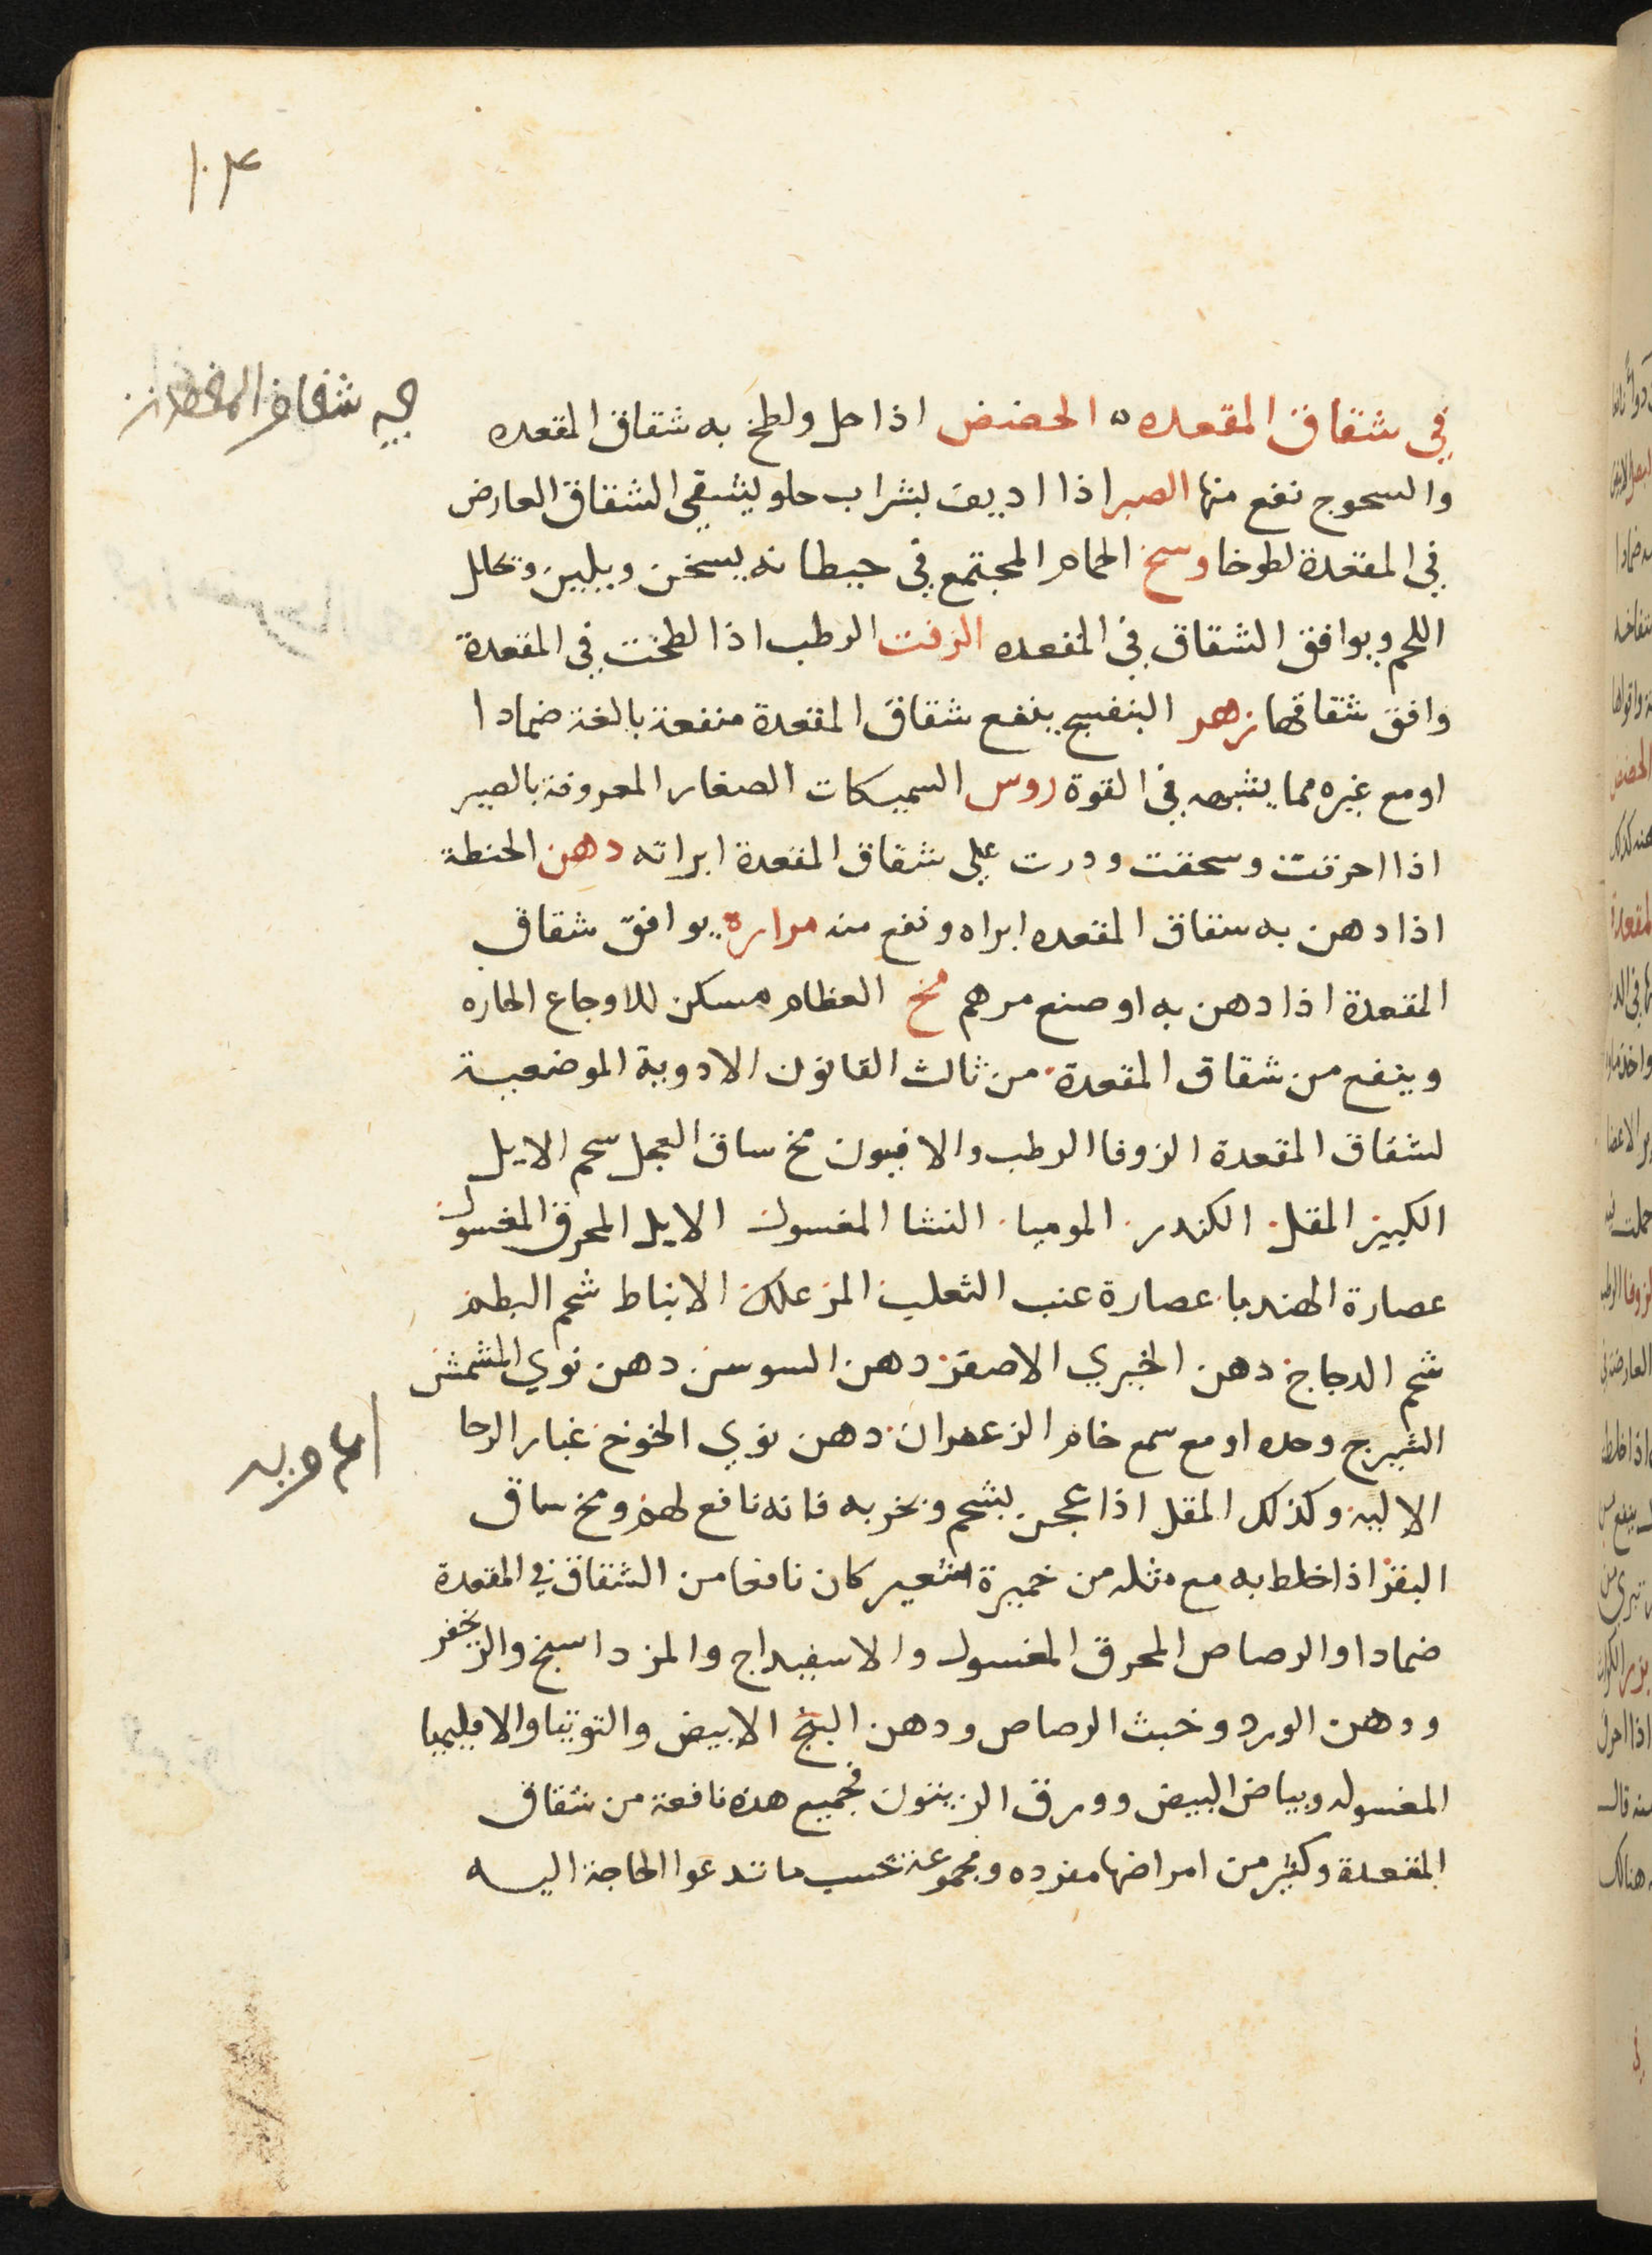 ١٠٣
في شقاق المقعده ه الحضض اذا حل ولطخ به شقاق المقعده
والسحوج نفع منها الصبر اذا اديف بشراب حلو يشفي الشقاق العارض
في المقعدة لطوخا وسخ الحمام المجتمع في حيطانه يسخن ويلين وتحلل
اللحم ويوافق الشقاق في المقعده الزفت الرطب اذا لطخت في المقعدة
وافق شقاقها زهر البنفسج ينفع شقاق المقعدة منفعة بالغة ضمادا
او مع غيره مما يشبهه في القوة روس السميكات الصغار المعروفة بالصير
اذا احرقت وسحقت وذرت علي شقاق المقعدة ابراته دهن الحنطة
اذا دهن به شقاق المقعده ابراه ونفع منه مرارة يوافق شقاق
المقعدة اذا دهن به او صنع مرهم مخ العظام مسكن للاوجاع الحاره
وينفع من شقاق المقعدة من ثالث القانون الادوية الموضعية
لشقاق المقعدة الزوفا الرطب والافيون مخ ساق العجل شحم الايل
المقل الكندر الموميا النشا المغسول الايل المحرق المغسول
عصارة الهندبا عصارة عنب الثعلب المر علك الانباط شحم البط
شحم الدجاج دهن الخيري الاصفر دهن السوسن دهن نوي المشمش
الشيرج وحده او مع سمع خام الزعفران دهن نوي الخوخ غبار الرحا
الالية وكذلك المقل اذا عجن بشحم وبخر به فانه نافع لهم ومخ ساق
البقر اذا خلط به مع مثله من خميرة الشعير كان نافعا من الشقاق في المقعدة
ضمادا والرصاص المحرق المغسول والاسفيداج والمرداسنج والزنجفر
ودهن الورد وخبث الرصاص ودهن البنج الابيض والتوتيا والاقليميا
المغسوله وبياض البيض وورق الزيتون فجميع هذه نافعة من شقاق
المقعدة وكثير من امراضها مفرده ومجموعة بحسب ما تدعوا الحاجة اليه